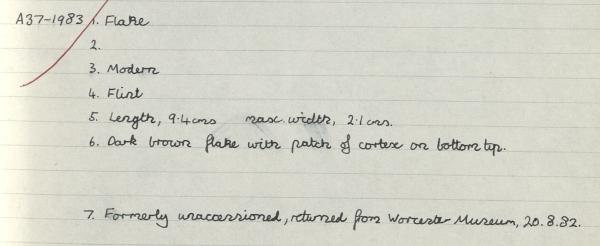 A37-1983 1. Flake
2.
3. Modern
4. Flint
5. Length, 9.4cms max. width, 2.1cms.
6. Dark brown flake with patch of cortex on bottom tip.
7. Formerly unaccessioned, returned from Worcester Museum, 20.8.82.